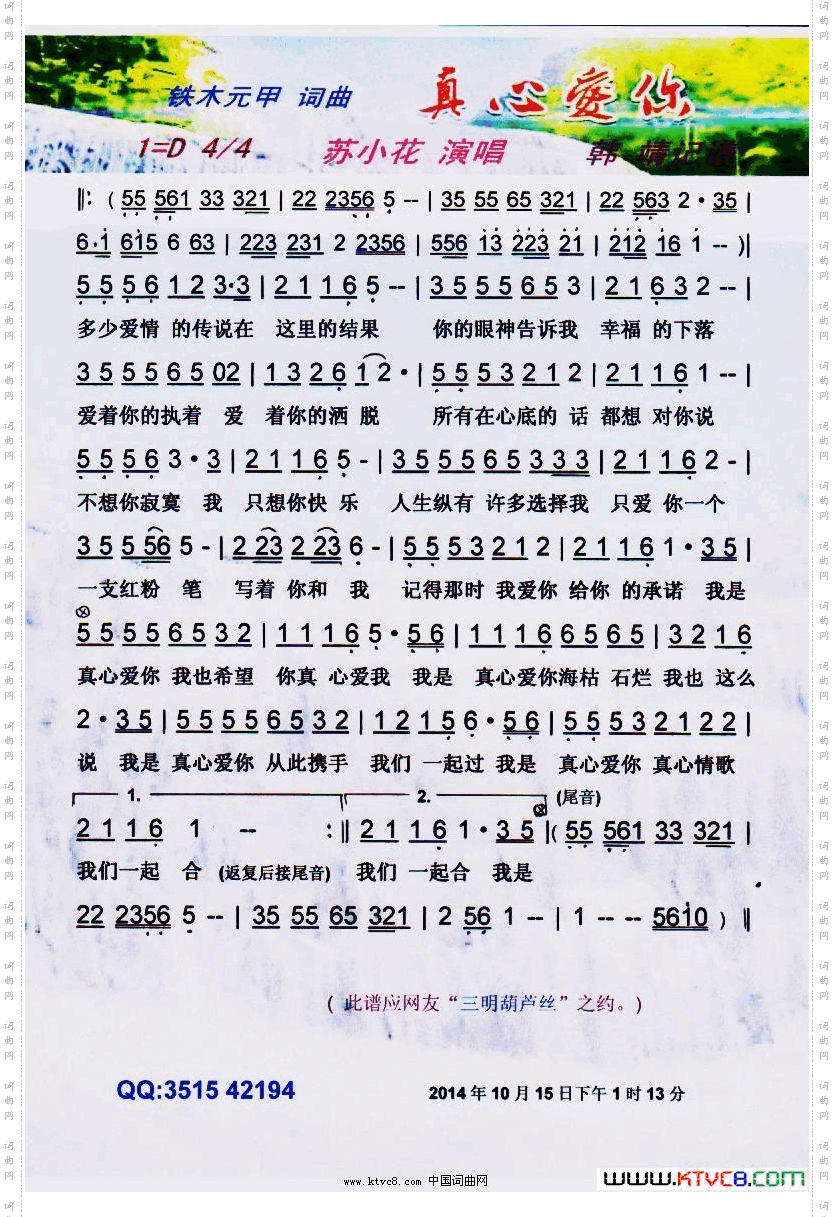 铁木元甲 词曲 真心爱你
1=D 4/4 苏小花 演唱 韩 靖记谱
‖: ( 55 561 33 321 | 22 2356 5 -- | 35 55 65 321 | 22 563 2 · 35 |
6·1 615 6 63 | 223 231 2 2356 | 556 13 223 21 | 212 16 1 -- )‖
5 5 5 6 1 2 3·3 | 2 1 1 6 5 -- | 3 5 5 5 6 5 3 | 2 1 6 3 2 -- |
多少爱情 的传说在 这里的结果 你的眼神告诉我 幸福 的下落
3 5 5 5 6 5 02 | 1 3 2 6 1 2 · | 5 5 5 3 2 1 2 | 2 1 1 6 1 -- |
爱着你的执着 爱 着你的洒 脱 所有在心底的 话 都想 对你说
5 5 5 6 3 · 3 | 2 1 1 6 5 - | 3 5 5 5 6 5 3 3 3 | 2 1 1 6 2 - |
不想你寂寞 我 只想你快 乐 人生纵有 许多选择我 只爱 你一个
3 5 5 56 5 - | 2 23 2 23 6 - | 5 5 5 3 2 1 2 | 2 1 1 6 1 · 3 5 |
一支红粉 笔 写着 你和 我 记得那时 我爱你 给你 的承诺 我是
5 5 5 5 6 5 3 2 | 1 1 1 6 5 · 5 6 | 1 1 1 6 6 5 6 5 | 3 2 1 6
真心爱你 我也希望 你真 心爱我 我是 真心爱你海枯 石烂 我也 这么
2 · 3 5 | 5 5 5 5 6 5 3 2 | 1 2 1 5 6 · 5 6 | 5 5 5 3 2 1 2 2 |
说 我是 真心爱你 从此携手 我们 一起过 我是 真心爱你 真心情歌
1. 2. (尾音)
2 1 1 6 1 -- :‖ 2 1 1 6 1 · 3 5 ‖( 55 561 33 321 |
我们一起 合 (返复后接尾音) 我们 一起合 我是
22 2356 5 -- | 35 55 65 321 | 2 56 1 -- | 1 -- -- 5610 ) ‖
( 此谱应网友“三明葫芦丝”之约。)
QQ:3515 42194 2014 年 10 月 15 日下午 1 时 13 分
www.ktvc8.com 中国词曲网
www.KTVC8.com